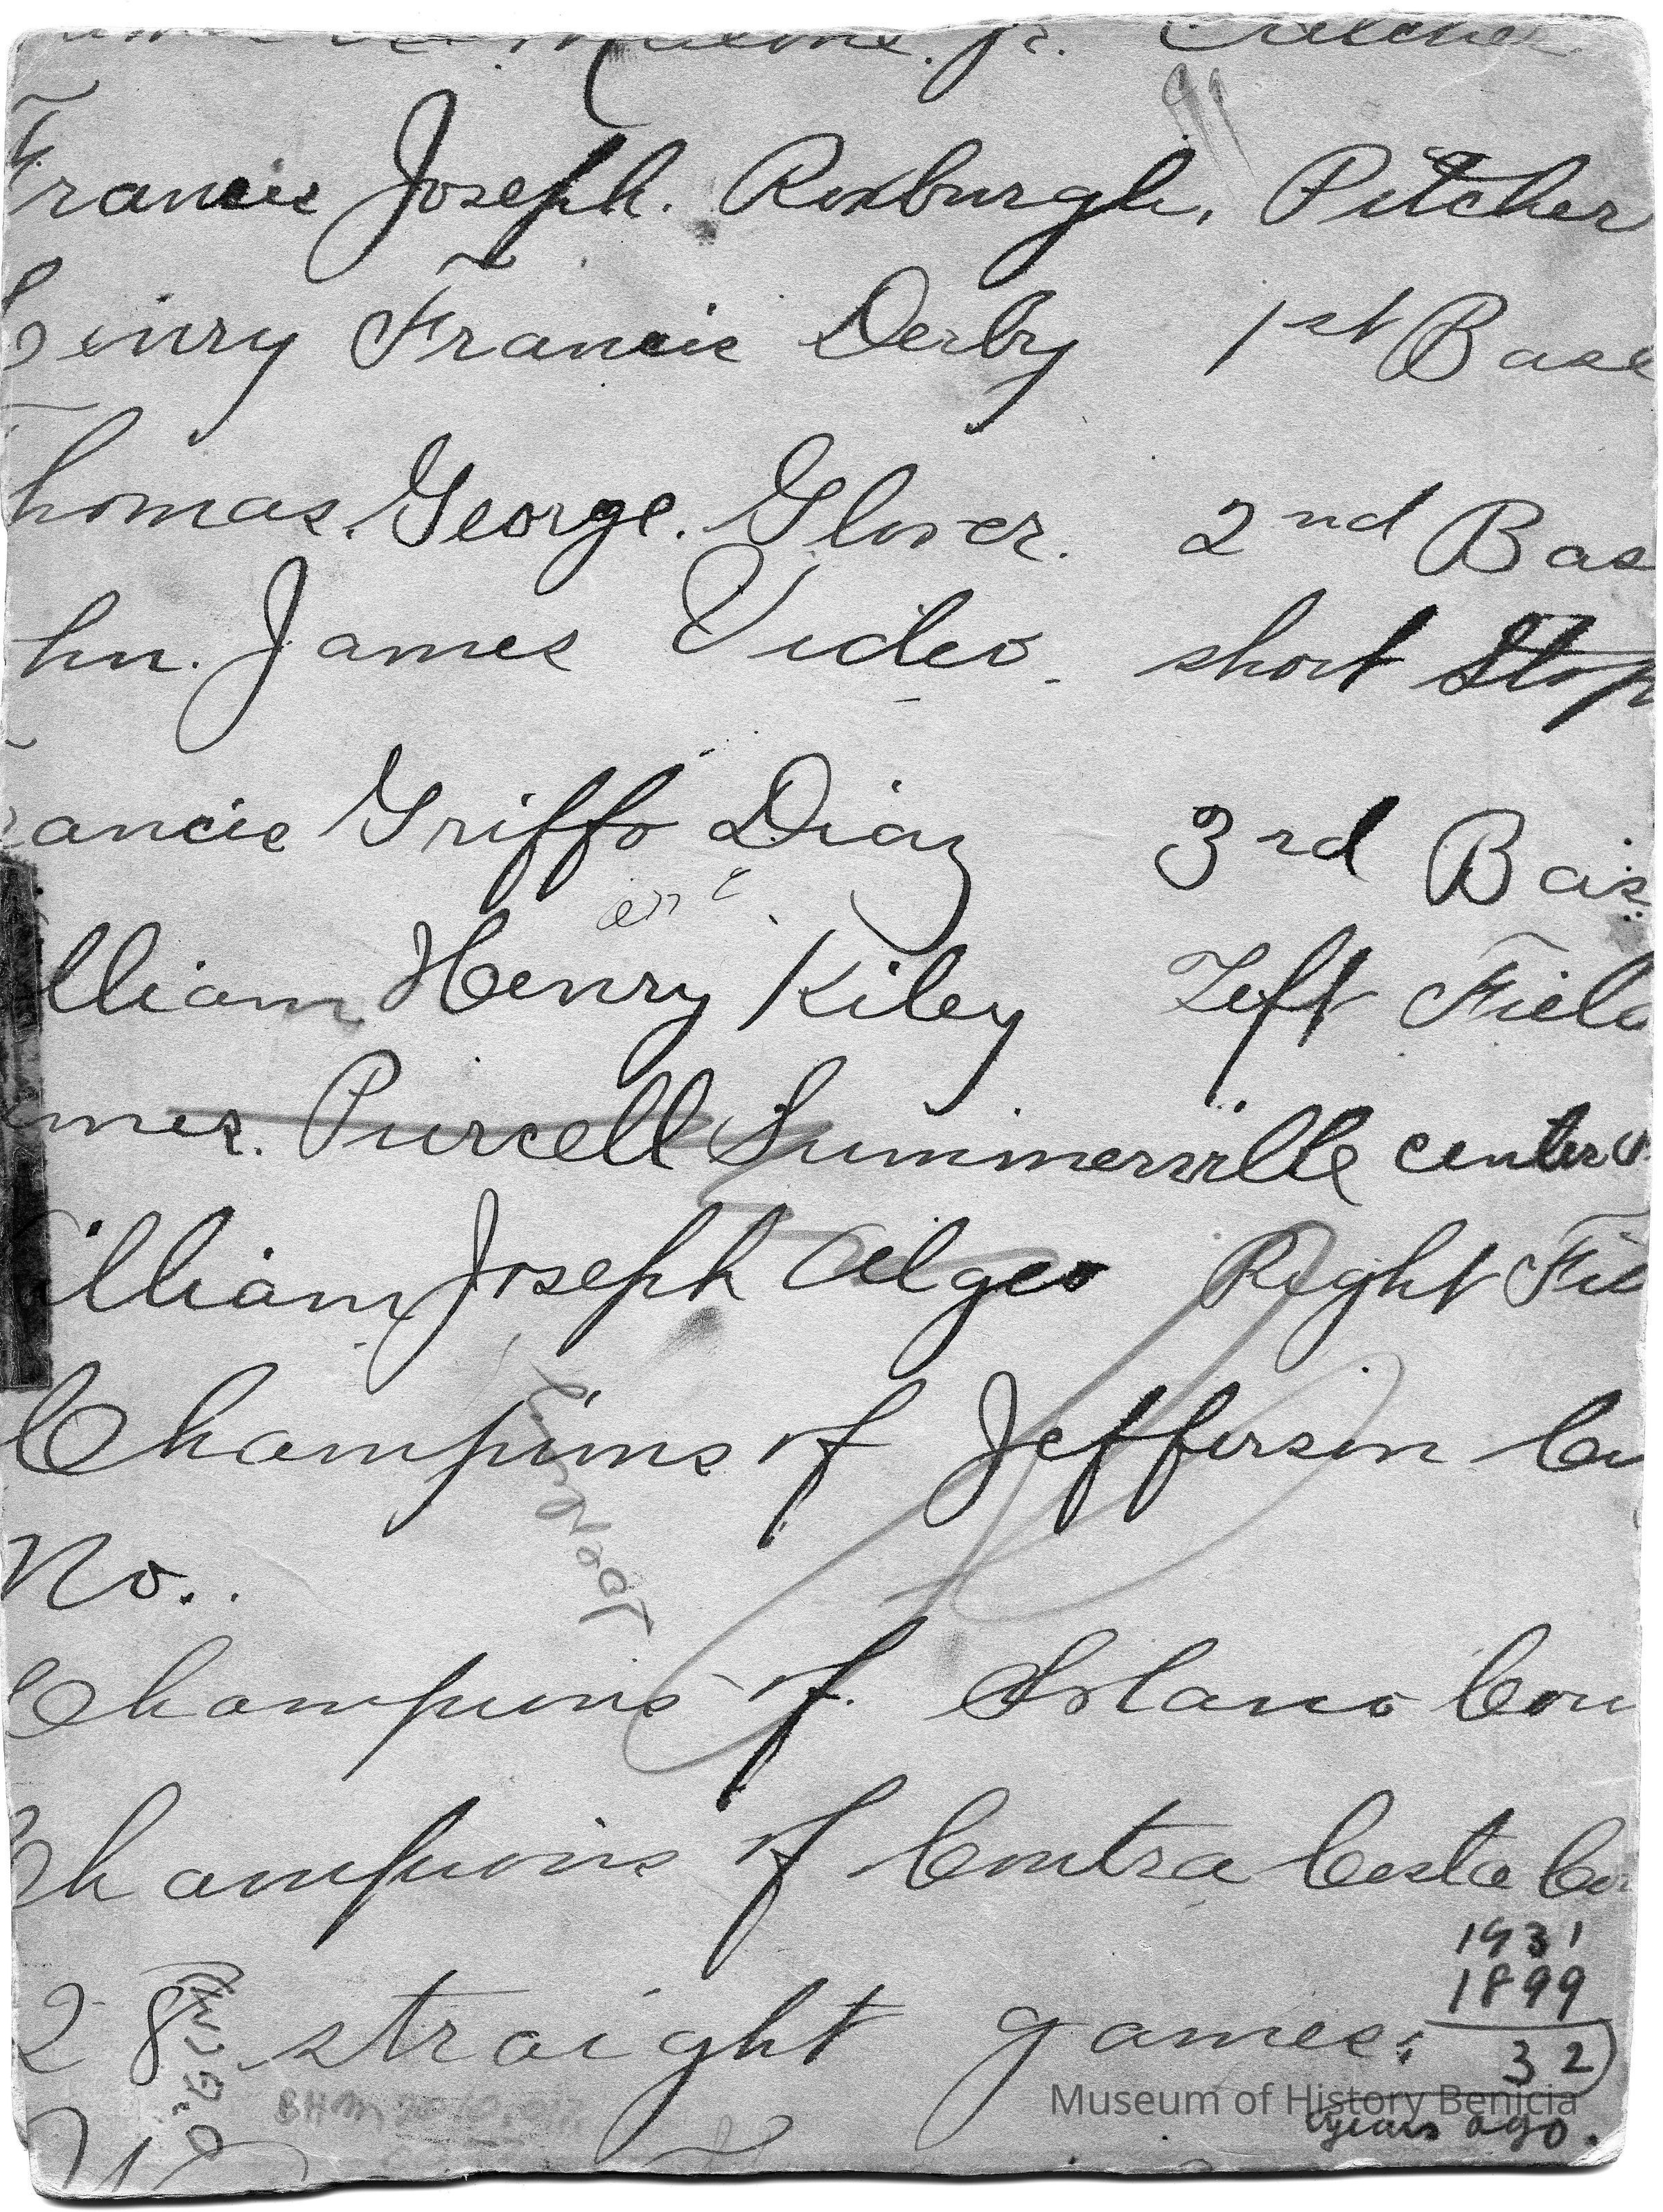 Malone. Jr. Catcher
Francis Joseph. Roxburgh, Pitcher
Henry Francis Derby 1st Base
homas. George. Glover. 2nd Bas
hn. James Video. short Stop
ancis Griffo Diaz 3rd Bas
lliam Henry Kiley Left Field
ames. Purcell Summerville center
illiam Joseph Algeo Right Fie
Champions of Jefferson Co
No..
Champions of. Solano Coun
Champions of Contra Costa Co
1931
1899
28 straight games.
32
years ago.
Museum of History Benicia